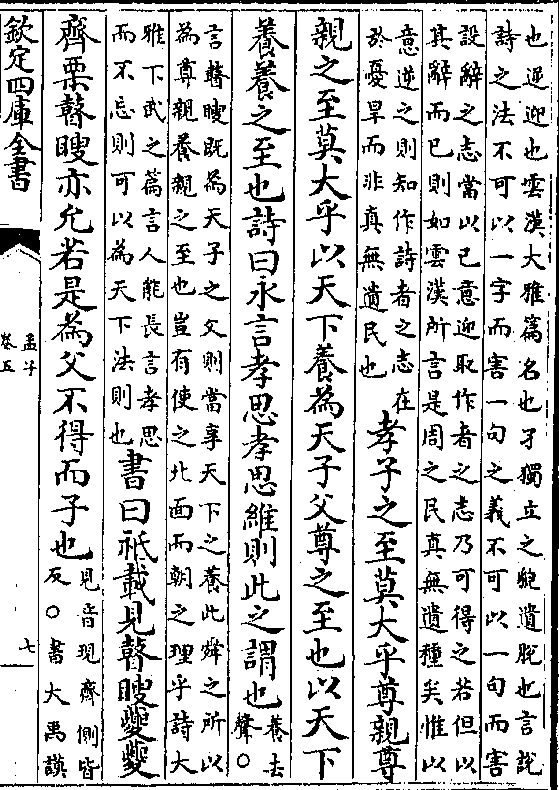 也逆迎也雲漢大雅篇名也孑獨立之貌遺脫也言說
詩之法不可以一字而害一句之義不可以一句而害
設辭之志當以己意迎取作者之志乃可得之若但以
其辭而已則如雲漢所言是周之民真無遺種矣惟以
意逆之則知作詩者之志在
於憂旱而非真無遺民也
孝子之至莫大乎尊親尊
親之至莫大乎以天下養為天子父尊之至也以天下
養養之至也詩曰永言孝思孝思維則此之謂也
養去
聲○
言瞽瞍既為天子之父則當享天下之養此舜之所以
為尊親養親之至也豈有使之北面而朝之理乎詩大
雅下武之篇言人能長言孝思
而不忘則可以為天下法則也
書曰祗載見瞽瞍夔夔
齊栗瞽瞍亦允若是為父不得而子也
見音現齊側皆
反○書大禹謨
欽定四庫全書
孟子
卷五
七